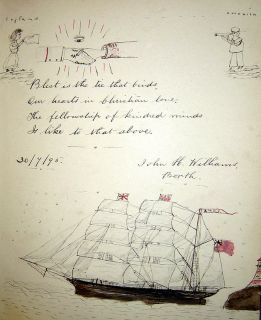 England America
Blest is the tie that binds,
Our hearts in Christian love;
The fellowship of kindred minds
Is like to that above.
30/7/95. John H. Williams,
Borth.